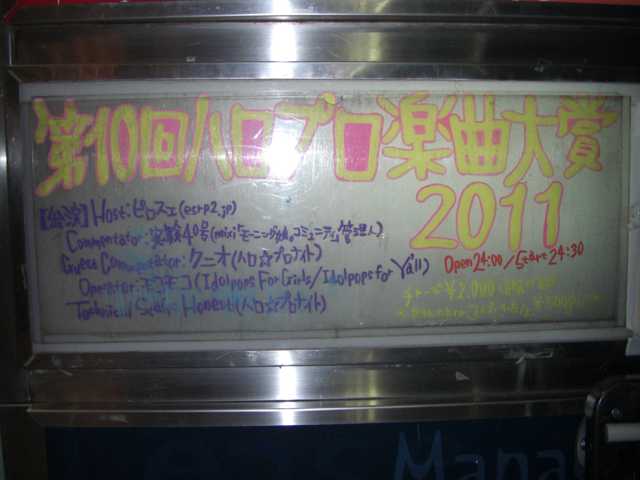 第10回ハロプロ楽曲大賞
2011
【出演】Host:ピロスエ(esrp2.jp)
Commentator:実験40号(mixi「モーニング娘。コミュニティ」管理人)
Guest Commentator:クニオ(ハロ☆プロナイト)
Operator:モコモコ(Idolpops For Girls/Idolpops for Y'all)
Technical Honest(ハロ☆プロナイト)
Open 24:00/Start 24:30
チャージ ¥2,000
Mana